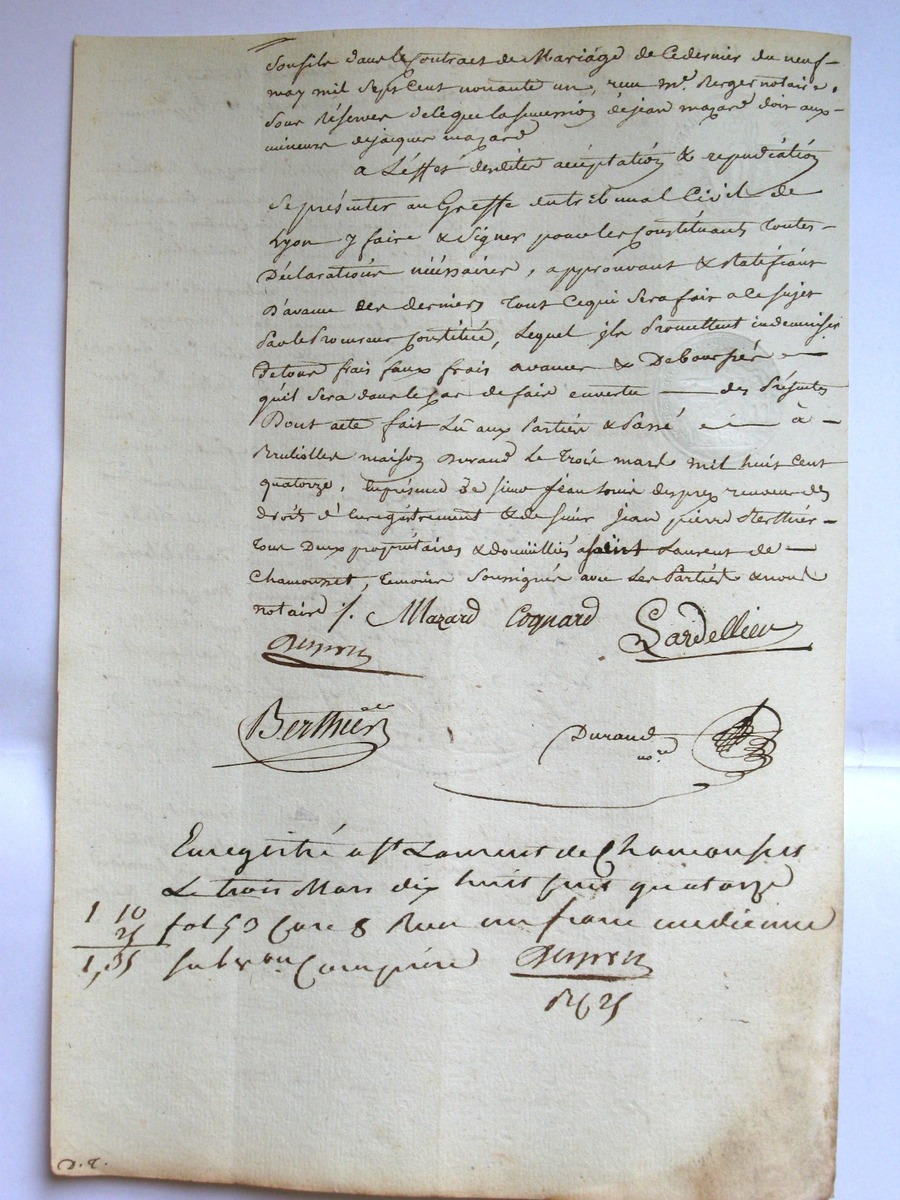 son fils dans le Contract de Mariage de ce dernier du neuf
may mil sept Cent nonante un, reçu me. Berger notaire,
sous Réserve de ce que la succession de jean mazard doit aux
mineurs de jacques mazard
a L'effet desdites acceptation & repudiation
Se présenter au Greffe du tribunal Civil de
Lyon y faire & Signer pour les Constituants toutes
Déclarations nécessaires, approuvant & Ratifiant
D'avance ces derniers tout ce qui sera fait a ce sujet
Par le Procureur Constitué, Lequel ils Promettent indemniser
de tous frais faux frais avances & Deboursés
qu'il sera dans le cas de faire en vertu des Présentes
Dont acte fait Lu aux Parties & Passé à
Brullioles maison Durand Le trois mars mil huit Cent
quatorze, En présence de sieur jean Louis despres receveur des
droits d'Enregistrement & de sieur jean pierre Berthier
tous Deux propriétaires & domiciliés a saint Laurent de
Chamousset, temoins soussignés avec Les Parties & nous
notaire /. Mazard Cognard Lardellier
Berthier
Durand
no.re
Enregistré a St Laurent de Chamousset
Le trois Mars dix huit cent quatorze
1 10 fol 53 Case 8 Reçu un franc un dixieme
25
1,35 subvon Comprise
R 25
D.T.